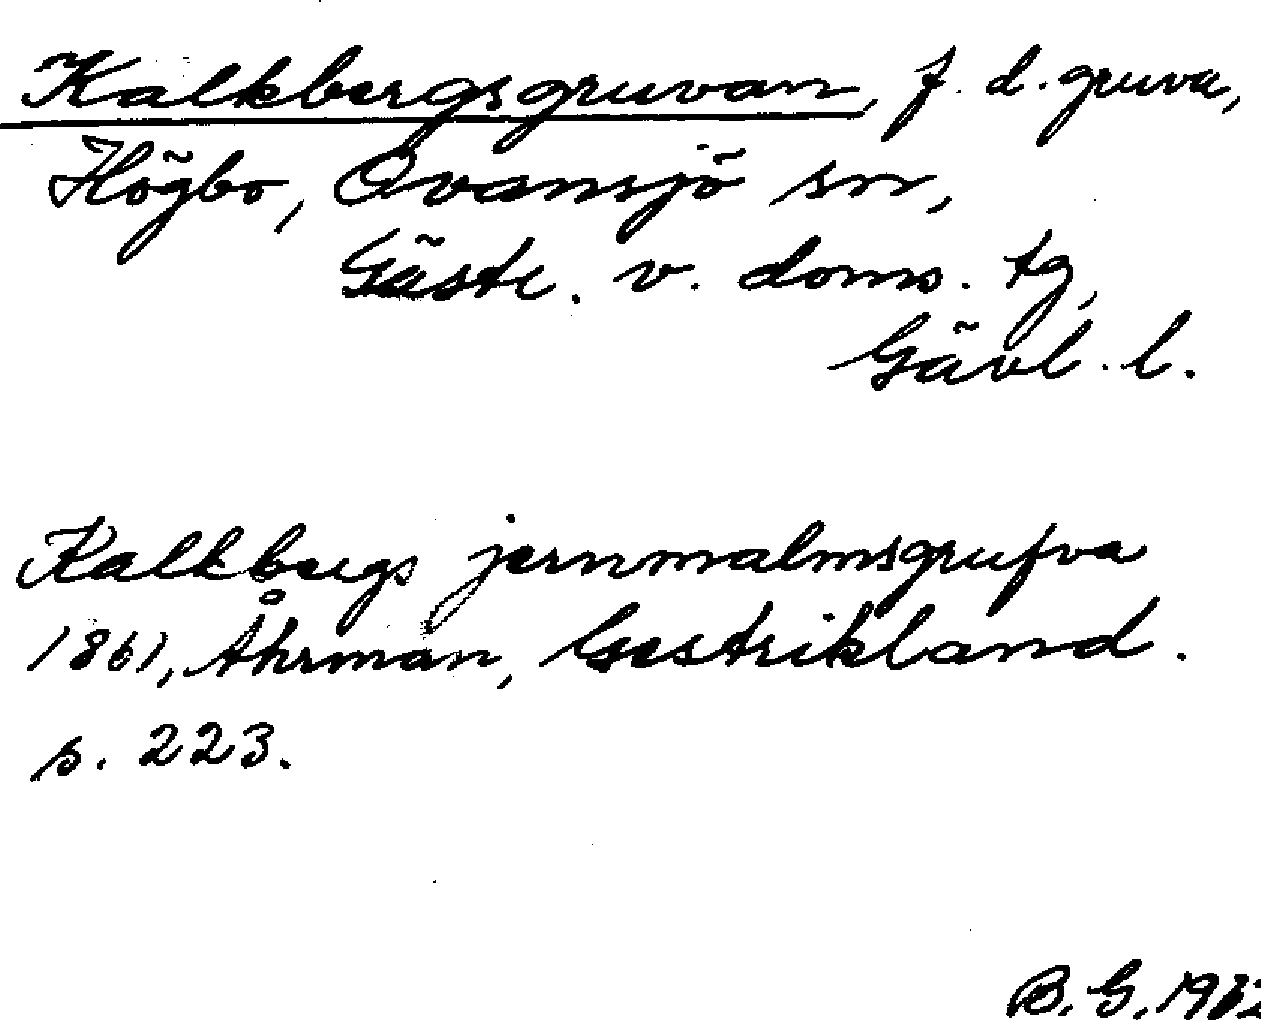 Kalkbergsgruvan, f. d. gruva,
Högbo, Ovansjö sn,
Gästr. v. doms. tg,
Gävl. l.
Kalkbergs jernmalmsgrufva
1861, Åhrman, Gestrikland.
s. 223.
B. G.